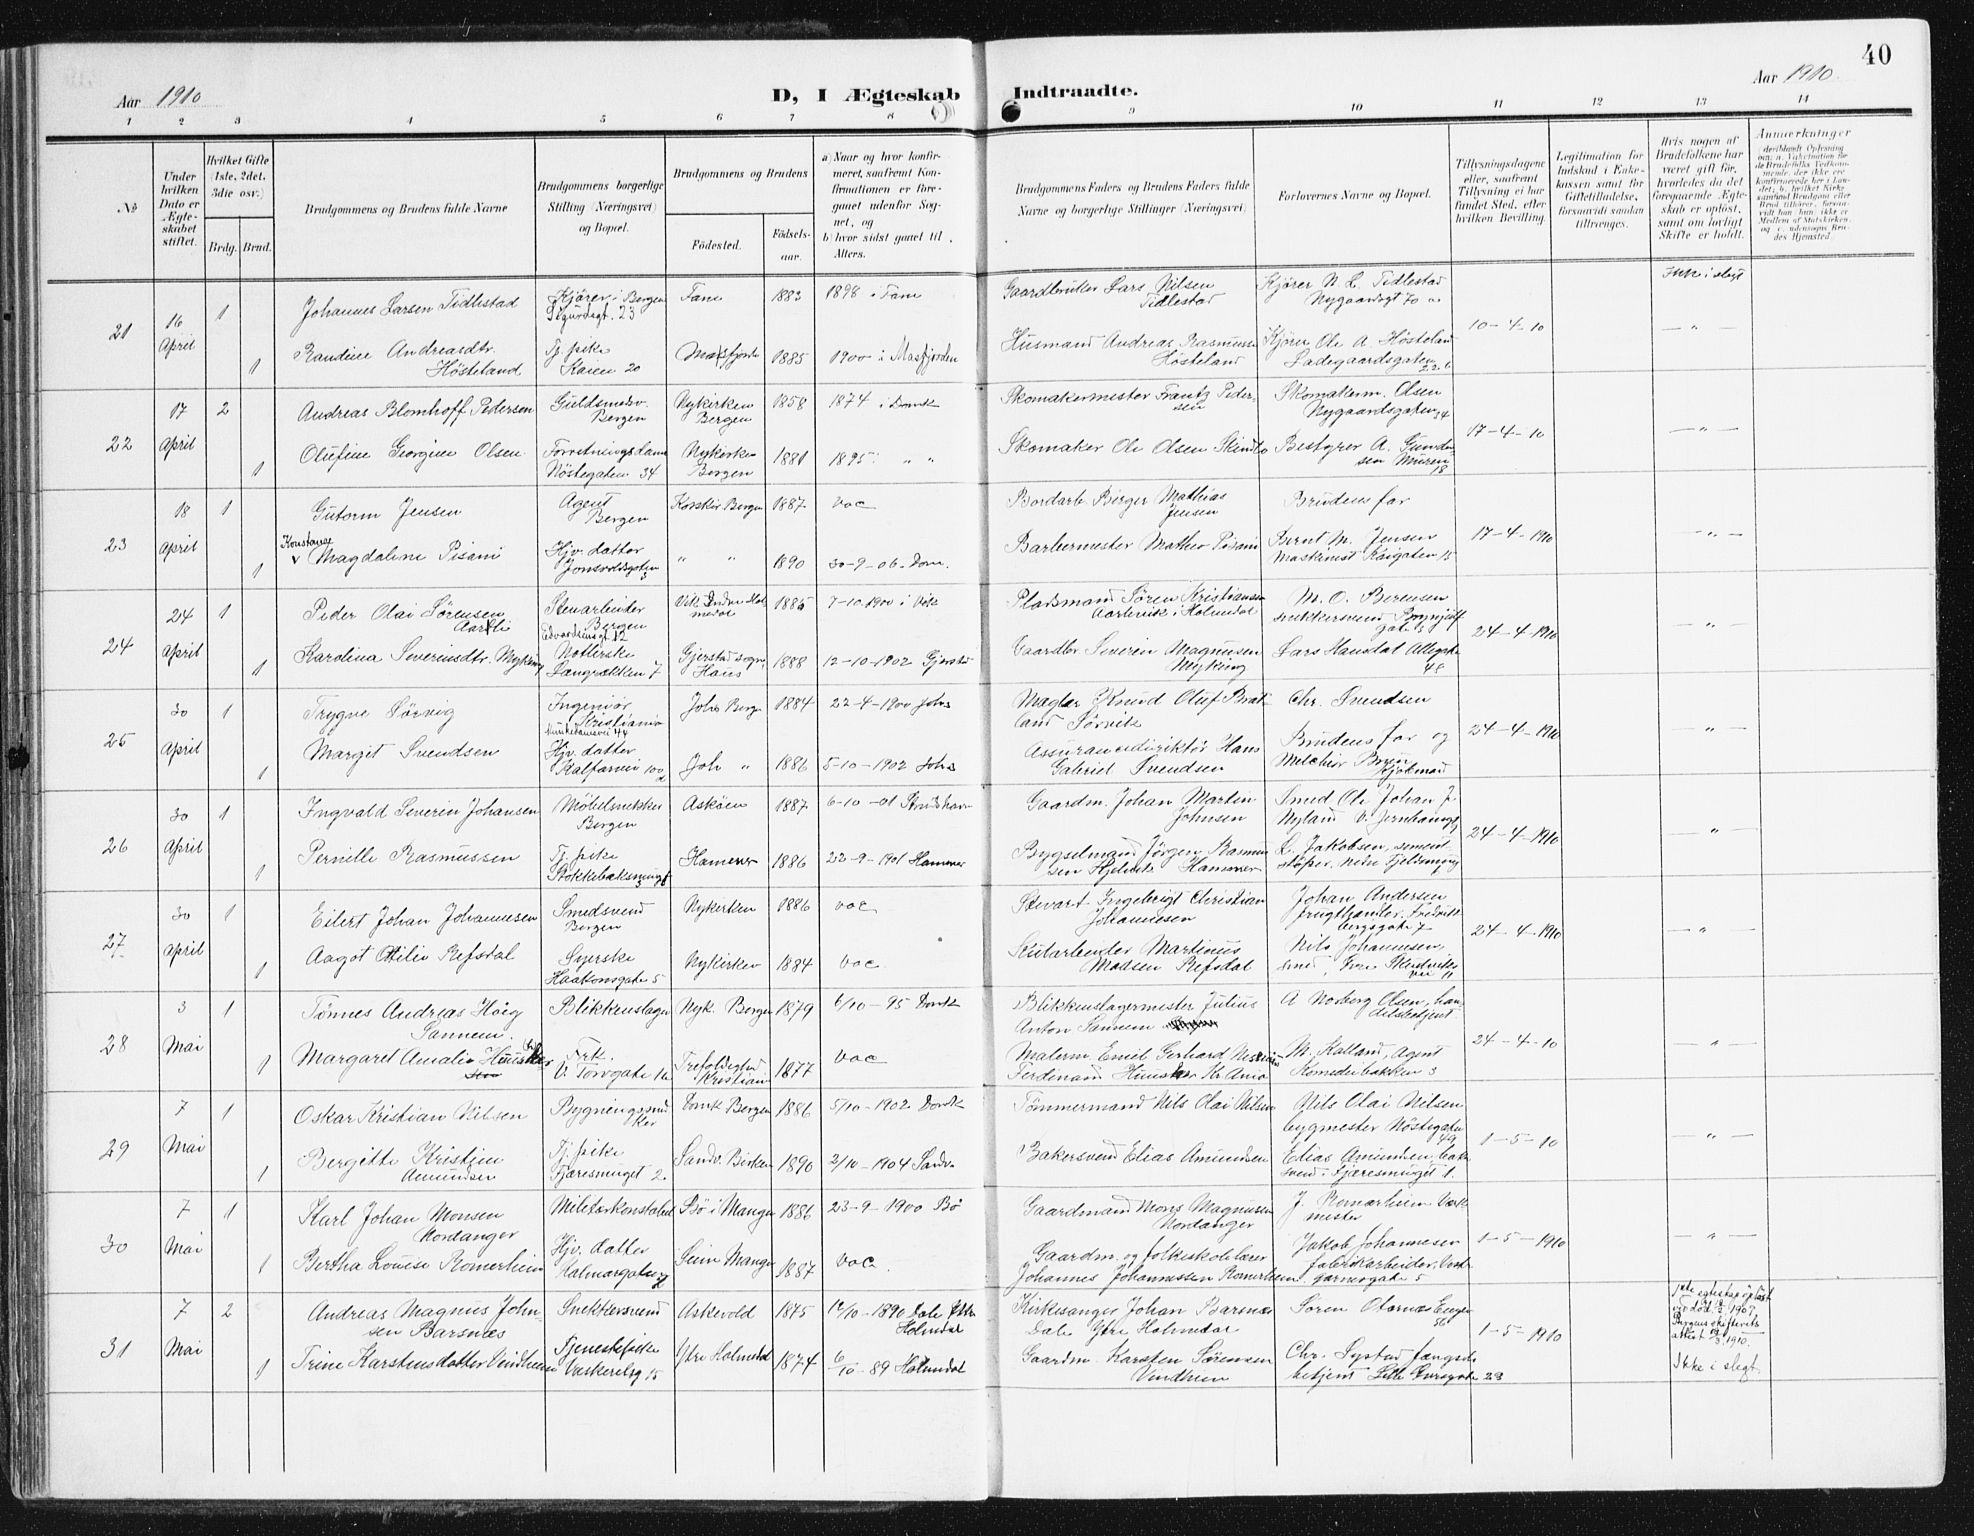 40
Aar 1910
D, I Ægteskab Indtraadte.
Aar 1910
1 2 3 4 5 6 7 8 9 10 11 12 13 14
No
Under hvilken Dato er Ægteskabet stiftet.
Hvilket Gifte (1ste, 2det, 3die osv.)
Brdg. Brud.
Brudgommens og Brudens fulde Navne
Brudgommens borgerlige Stilling (Næringsvei) og Bopæl.
Brudgommens og Brudens
Fødested. Fødselsaar.
a) Naar og hvor konfirmeret, saafremt Konfirmationen er foregaaet udenfor Sognet, og
b) hvor sidst gaaet til Alters.
Brudgommens Faders og Brudens Faders fulde Navne og borgerlige Stillinger (Næringsvei)
Forlovernes Navne og Bopæl.
Tillysningsdagene eller, saafremt Tillysning ei har fundet Sted, efter hvilken Bevilling.
Legitimation for Indskud i Enkekassen samt for Giftetilladelse, forsaavidt saadan tiltrænges.
Hvis nogen af Brudefolkene har været gift før, hvorledes da det foregaaende Ægteskab er opløst, samt om lovligt Skifte er holdt.
Anmærkninger
21 16 April 1 Johannes Larsen Tidlestad Kjører i Bergen Sigurdsgt. 23 Fane 1883 1898 i Fane Gaardbruker Lars Nilsen Tidlestad Kjører N. L. Tidlestad Nygaardsgt 70 a 10-4-10 Ikke i slegt
1 Randine Andreasdtr. Høsteland Tj. pike Kaien 20 Masfjorden 1885 1900 i Masfjorden Husmand Andreas Rasmussen Høsteland Kjører Ole A. Høsteland Ladegaardsgaten 22 b — " —
22 17 April 2 Andreas Blomhoff Pedersen Guldsmedsv. Bergen Nykirken Bergen 1858 1874 i Domk Skomakermester Frantz Pedersen Skomakerm. Olsen Nygaardsgaten 34 17-4-10 — " —
1 Olufine Georgine Olsen Forretningsdame Nöstegaten 34 Nykirken Bergen 1881 1895 " " Skomaker Ole Olsen Skindlo Bestyrer A. Gundersen Muren 18
23 18 April 1 Gutorm Jensen Agent Bergen Korskir Bergen 1887 vac Bordarb. Birger Mathias Jensen Brudens far 17-4-1910 — " —
1 Konstance v Magdalene Pisani Hjv. datter Jonsvoldsgaten 3 " " 1890 30-9-06. Dom. Barbermester Matheo Pisani Bernt M. Jensen Maskinist Kaigaten 15
24 24 April 1 Peder Olai Sørensen Aarli Stenarbeider Bergen Edvardsensgt 12 Vik Indre Holmedal 1885 7-10-1900 i Vik Pladsmand Søren Kristiansen Aarlevik i Holmedal M. O. Berensen snekkersvend 24-4-1910 — " —
1 Karolina Severinsdtr. Myking Natterske Langrækken 7 Gjerstad sogn Haus 1888 12-10-1902 Gjerstad Gaardbr Severin Magnusen Myking Lars Hausdal Allégt 48
25 30 April 1 Trygve Sørvig Ingeniør Kristiania Munkedamsvei 44 Joh. Berg 1884 22-4-1900 Johs Megler Knud Oluf Bratland Sørvik Chr. Svendsen 24-4-1910 — " —
1 Margit Svendsen Hjv. datter Kalfarvei 100 a Joh " 1886 5-10-1902 Johs Assurancedirektør Hans Gabriel Svendsen Brudens far og Melchior Bruun Kjøbmand
26 30 April 1 Ingvald Severin Johansen Møbelsnekker Bergen Askøen 1887 6-10-01 Strudshavn Gaardm. Johan Martin Johnsen Smed Ole Johan J. Nyland 24-4-1910 — " —
1 Pernille Rasmussen Tj. pike Stokkebaksmug 3 Hammer 1886 22-9-1901 Hammer Bygselmand Jørgen Rasmussen Hjelvik Hammer L. Jakobsen, sementstøper, nedre Fjeldsmug
27 30 April 1 Eilert Johan Johannesen Smedsvend Bergen Nykirken 1886 vac Stevart Ingebrigt Christian Johannesen Johan Andersen frugthandler, Fredriksbergsgate 7 24-4-1910 — " —
1 Aagot Otilie Refsdal Syerske Haakonsgate 5 Nykirken 1884 vac Kularbeider Martinus Madsen Refsdal Nils Johannesen, smed
28 3 Mai 1 Tønnes Andreas Høeg Sannem Blikkenslager Nyk. Bergen 1879 6/10-95 Domk Blikkenslagermester Julius Anton Sannem A Norberg Olsen, handelsbetjent 24-4-10 — " —
1 Margaret Amalie Frk. V. Torvgate 16 Trefoldighed Kristiania 1877 vac Malerm. Emil Gerhard Ferdinand M. Kalland, Agent Komediebakken 3
29 7 Mai 1 Oskar Kristian Nilsen Bygningssnekker Domk Bergen 1886 5/10-1902 Domk Tømmermand Nils Olai Nilsen Nils Olai Nilsen bygmester Nöstegaten 49 1-5-10 — " —
1 Bergitte Kristine Amundsen Tj. pike Fjæresmuget 2 Sandv. Birken 1890 2/10-1904 Sandv. Bakersvend Elias Amundsen Elias Amundsen, bakersvend, Fjæresmuget 1.
30 7 Mai 1 Karl Johan Monsen Nordanger Militærkonstabel Bø i Manger 1886 23-9-1900 Bø Gaardmand Mons Magnusen Nordanger J. Romarheim Værkmester 1-5-1910 — " —
1 Bertha Louise Romerheim Hjv. datter Kalmargaten Seim Manger 1887 vac. Gaardm. og folkeskolelærer Johannes Johannessen Romerheim Jakob Johannesen fabrikarbeider, Vestre garnesgate 5
31 7 Mai 2 Andreas Magnus Johnsen Barsnæs Snekkersvend Askevold 1875 1890 Dale Ytre Holmdal Kirkesanger Johan Barsnæs Dale Ytre Holmdal Søren Otarnæs Engen 56 1-5-1910 1ste egteskap opløst ved død 1909. Bergens skifterets attest 1910.
1 Trine Karstensdatter Vindheim Tjenestepike Vaskerelvg 15 Ytre Holmedal 1874 6/10-89 Holmdal Gaardm. Karsten Sørensen Vindheim Chr. Systad fængselsbetjent Lille 23 Ikke i slegt